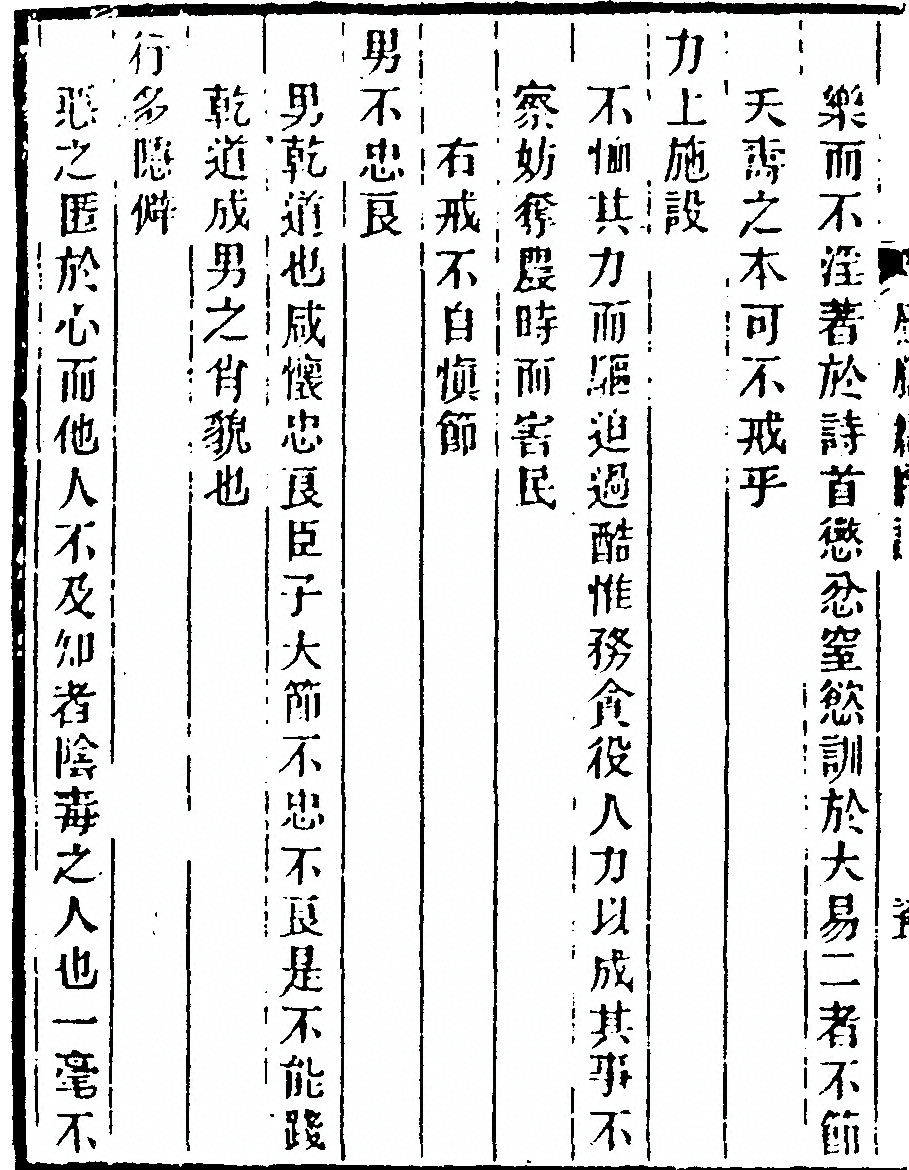 樂而不淫著於詩首懲忿窒慾訓於大易二者不節
夭壽之本可不戒乎
力上施設
不恤其力而驅迫過酷惟務貪役人力以成其事不
察妨奪農時而害民
右戒不自愼節
男不忠良
男乾道也咸懷忠良臣子大節不忠不良是不能踐
乾道成男之肖貌也
行多隱僻
惡之匿於心而他人不及知者陰毒之人也一毫不